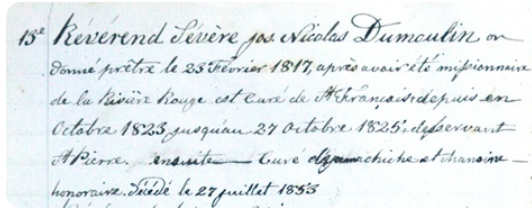 13e Révérend Sévère jos Nicolas Dumoulin or
donné prêtre le 23 Février 1817, après avoir été missionnaire
de la Rivière Rouge est Curé de St François, depuis en
Octobre 1823 jusqu'au 27 Octobre 1825, desservant
St Pierre ensuite Curé d'yamachiche et chanoine
honoraire. Décédé le 27 juillet 1853